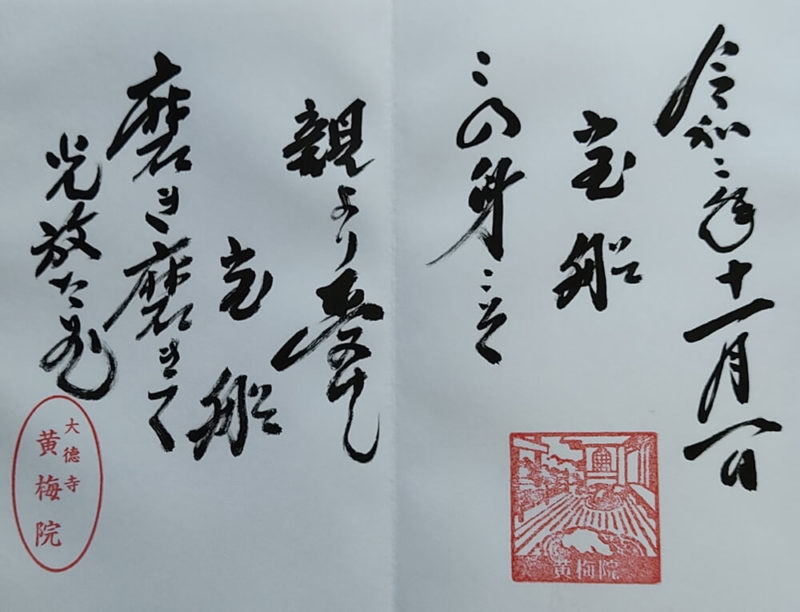 令和二年十一月一日
宝船
この身こそ
親より受けし
宝船
磨き磨きて
光放たむ
大徳寺
黄梅院
黄梅院